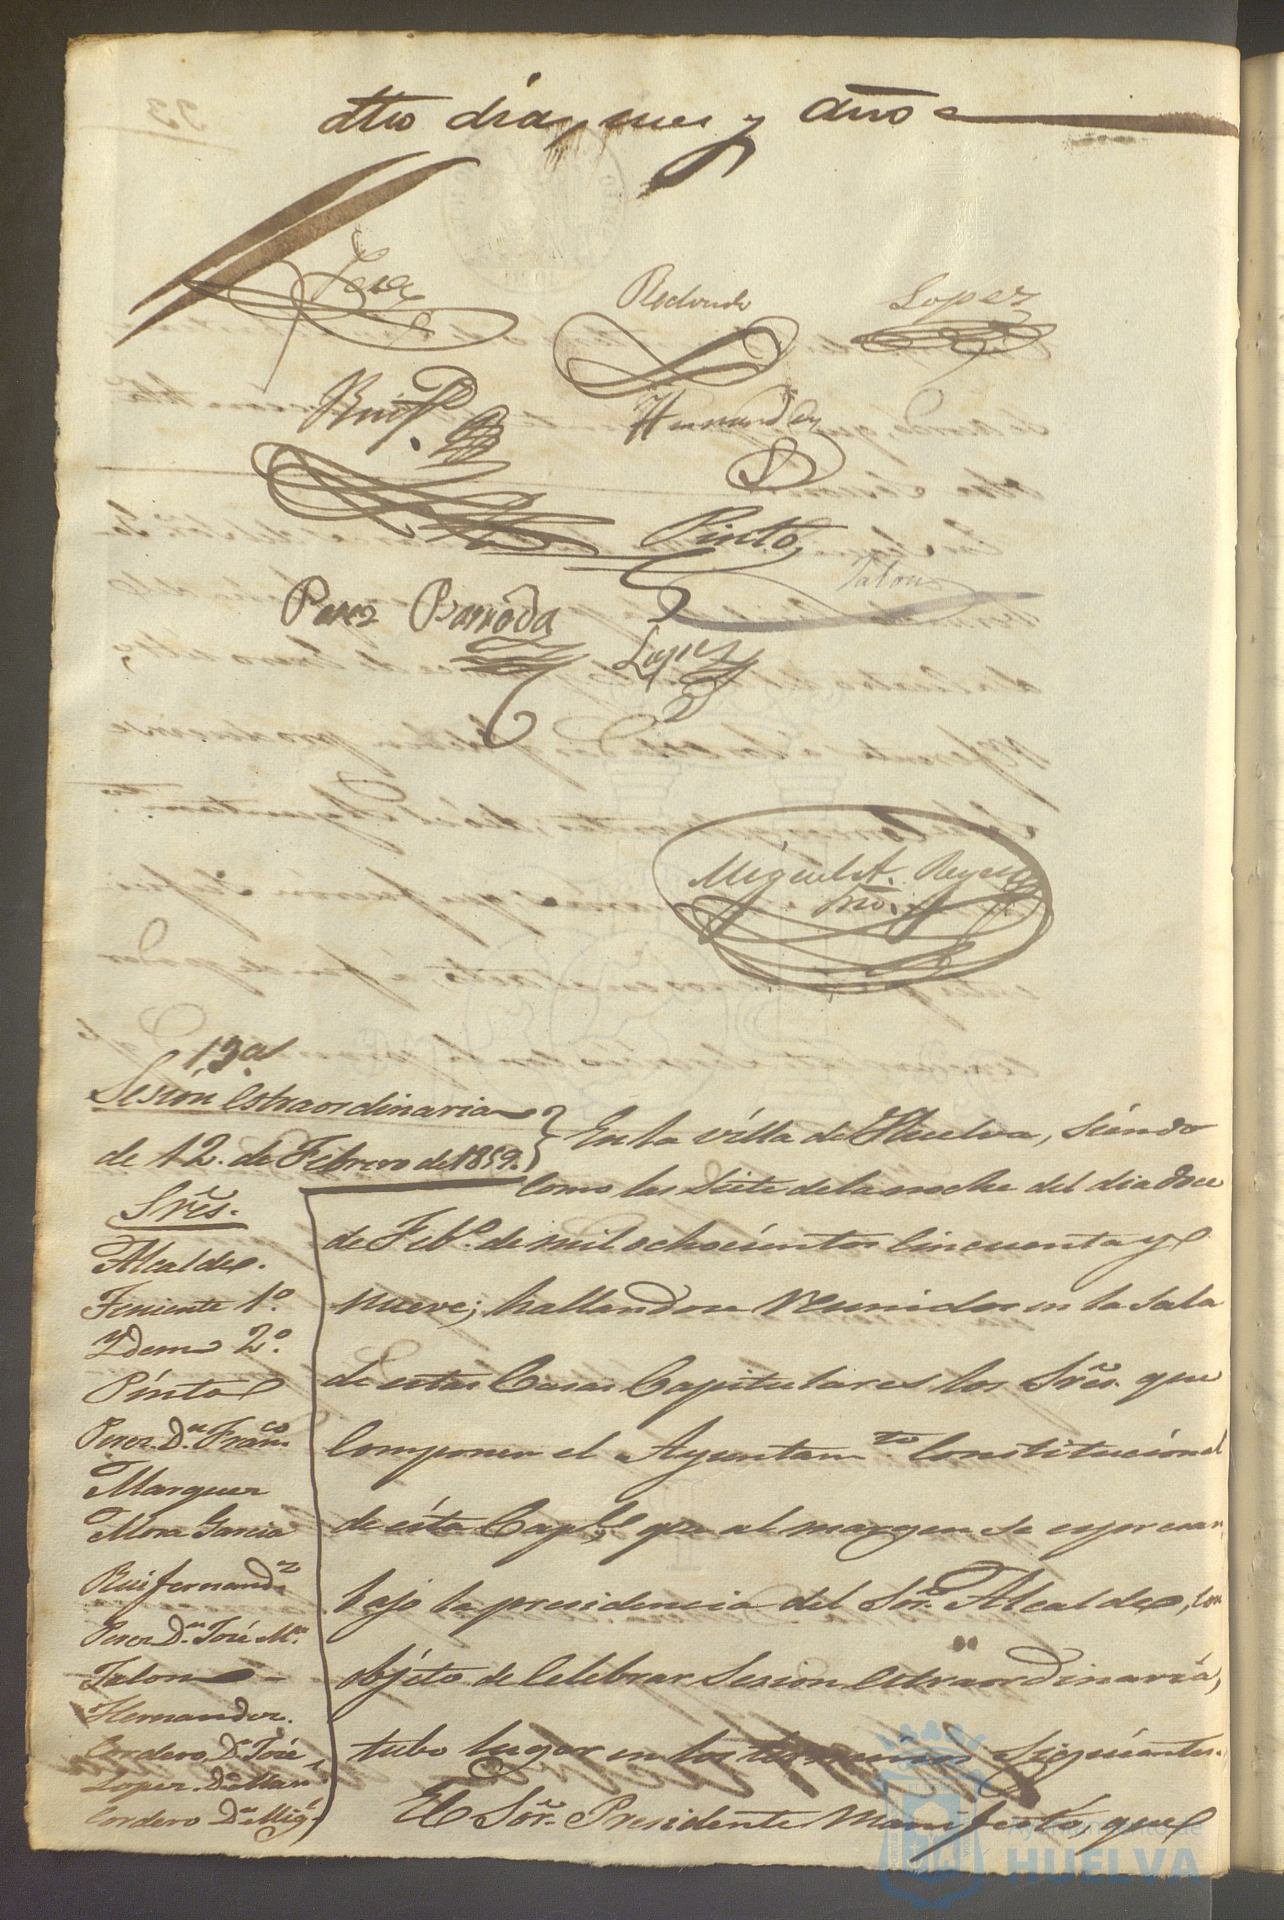 dho dia, mes y año
Redondo
Lopez
Ruifz
Hernandez
Pinto
Talon
Perez Barroda
Lopez
Miguel A. Reyes
Srio.
13ª
Sesión estraordinaria
de 12. de Febrero de 1859.
Sres.
Alcalde.
Teniente 1º.
Ydem 2º.
Pinto
Perez Dn. Franco.
Marquez
Mora Garcia
Ruifernandz
Perez Dn. José Mª.
Talon
Hernandez.
Cordero, Dn. José
Lopez Dn. Man.
Cordero Dn. Migl.
En la villa de Huelva, siendo
como las siete de la noche del dia doce
de Febo. de mil ochocientos cincuenta y
nueve; hallandose reunidos en la sala
de estas Casas Capitulares los Sres. que
componen el Ayuntamto. Constitucional
de ésta Capl. que al margen se espresan
bajo la presidencia del Sor. Alcalde, con
objeto de celebrar sesion estraordinaria,
tubo lugar en los terminos siguientes.
El Sor. Presidente manifestó, que
Ayuntamiento de
HUELVA